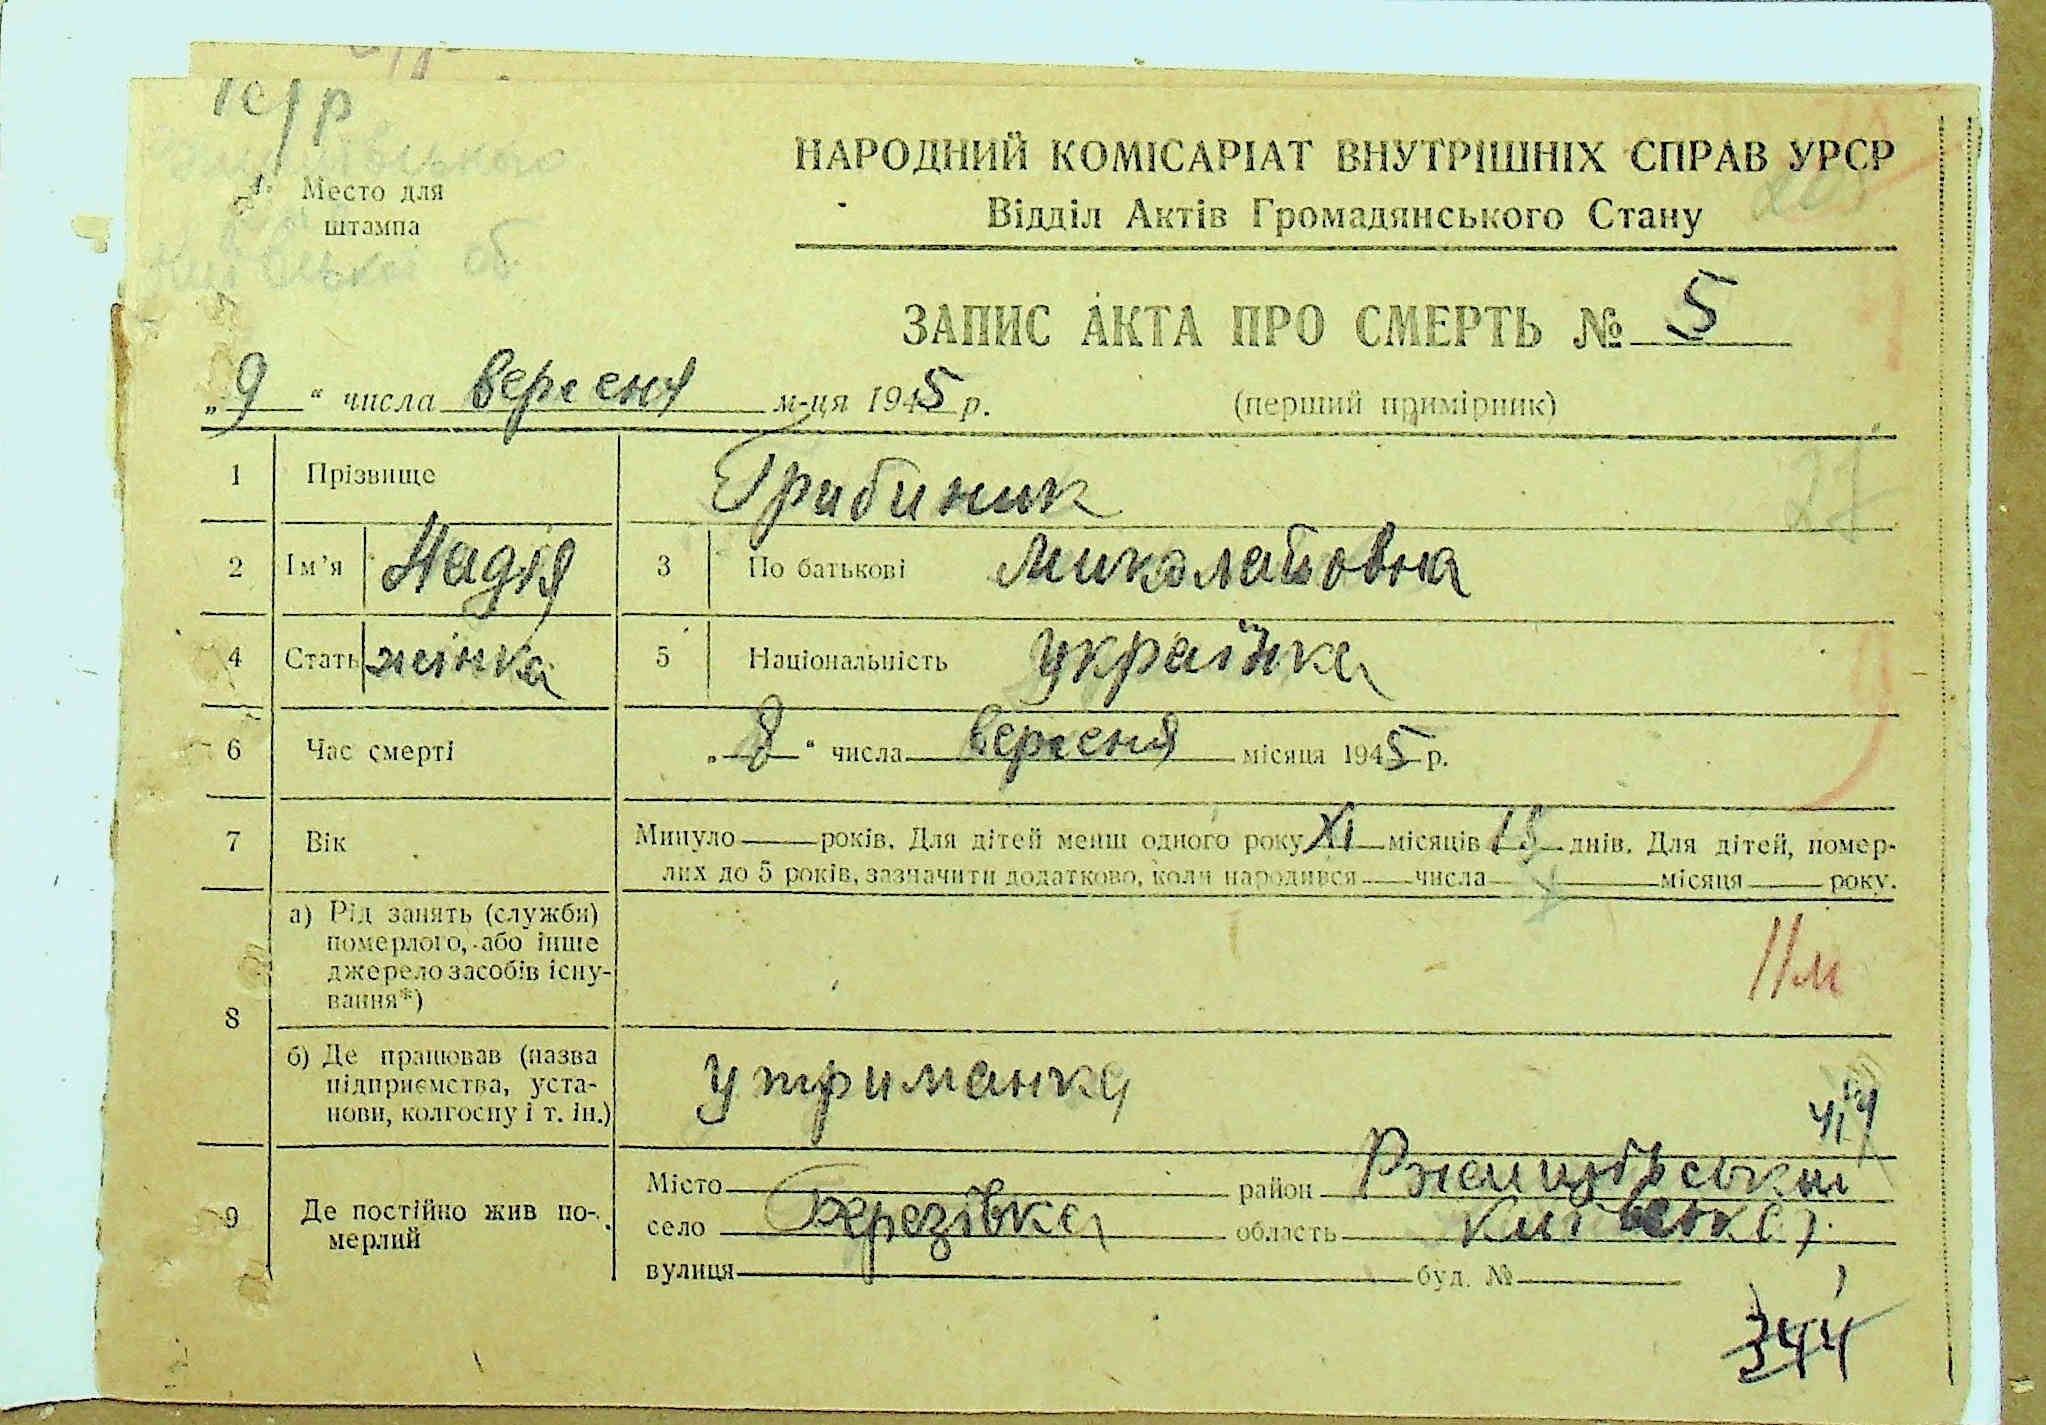 с/р
Место для
штампа
Київської об
НАРОДНИЙ КОМІСАРІАТ ВНУТРІШНІХ СПРАВ УРСР
Відділ Актів Громадянського Стану
ЗАПИС АКТА ПРО СМЕРТЬ № 5
„9“ числа вересня м-ця 1945 р.
(перший примірник)
1 Прізвище Грабиник
2 Ім'я Надія 3 По батькові Миколайовна
4 Стать жінка 5 Національність українка
6 Час смерті „8“ числа вересня місяця 1945 р.
7 Вік Минуло — років. Для дітей менш одного року XI місяців 18 днів. Для дітей, помер-
лих до 5 років, зазначити додатково, коли народився — числа — місяця — року.
8 а) Рід занять (служби)
померлого, або інше
джерело засобів існу-
вання*)
11м
б) Де працював (назва
підприємства, уста-
нови, колгоспу і т. ін.)
утриманка
9 Де постійно жив по-
мерлий
Місто район Ржищівський
село Березівка область Київська
вулиця буд. №
344